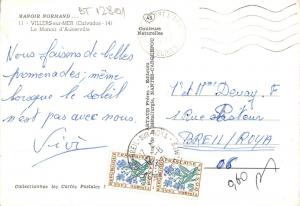 BT 12801
MANOIR NORMAND
11 - VILLERS-sur-MER (Calvados - 14)
Le Manoir d'Auberville
Couleurs
Naturelles
Nous faisons de belles
promenades, même
lorsque le soleil
n'est pas avec nous.
Vivi
1 et Mme Devay F
1 Rue Pasteur
BREIL/ROYA
06
960
Collectionnez les Cartes Postales !